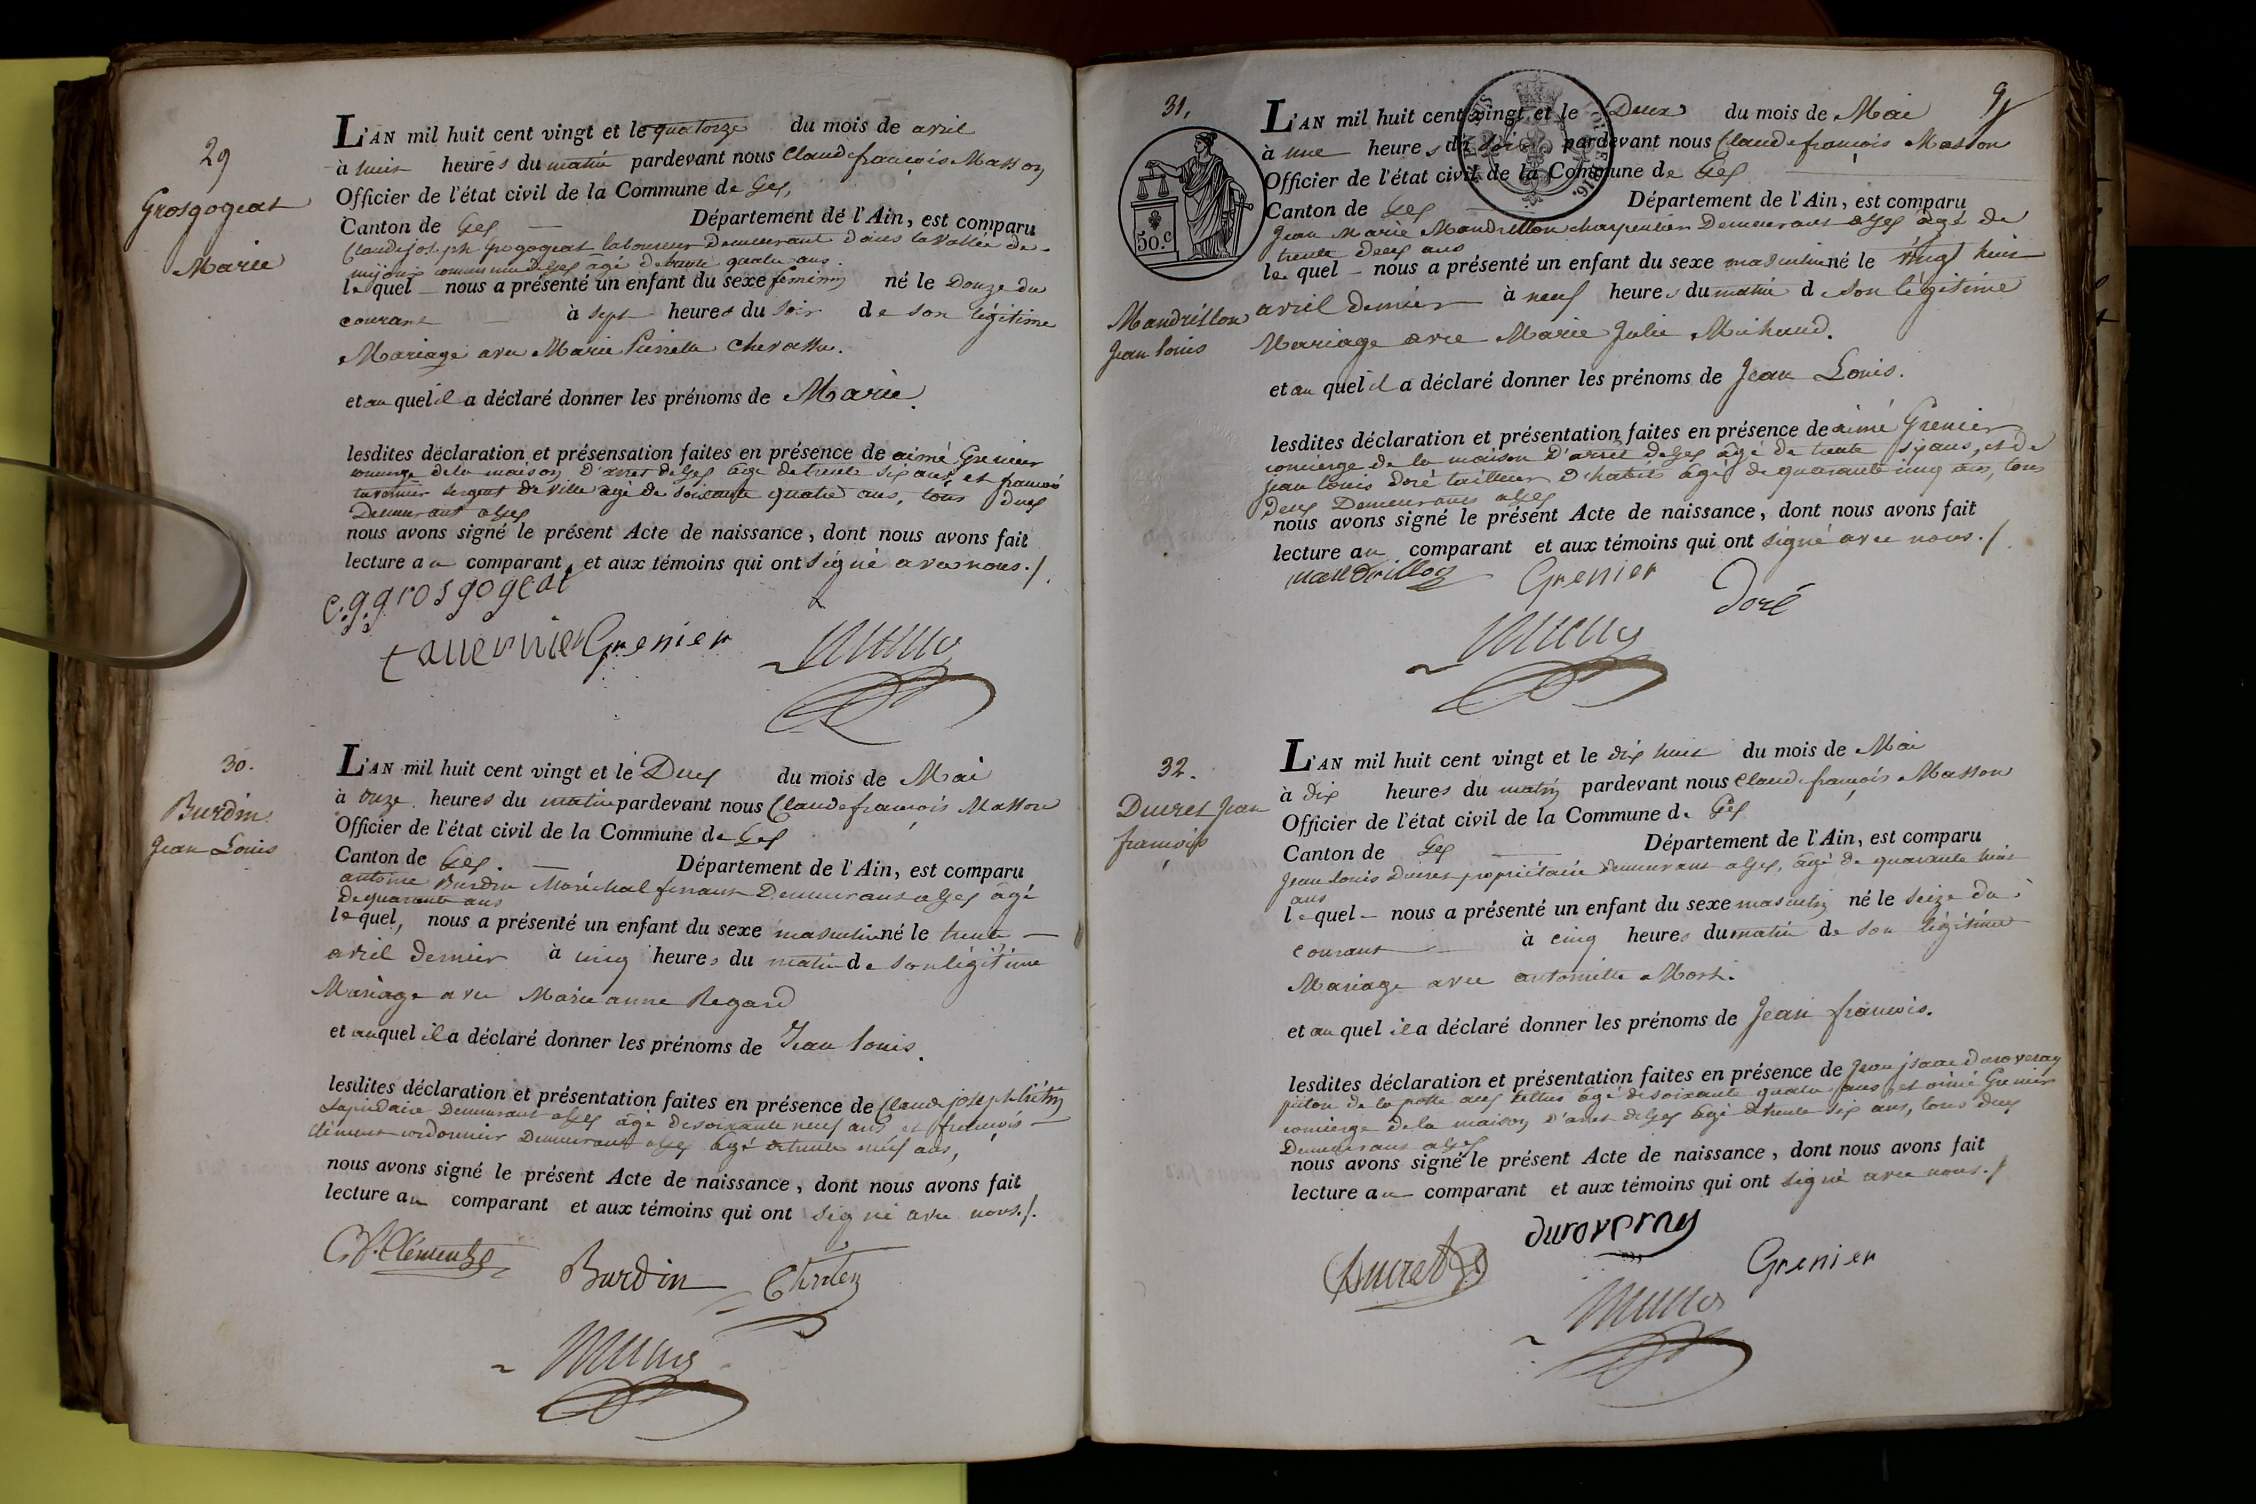 29
Grosgogeat
Marie
L'AN mil huit cent vingt et le quatorze du mois de avril
à huit heures du matin pardevant nous Claude françois Masson
Officier de l'état civil de la Commune de Gex,
Canton de Gex Département de l'Ain, est comparu
Claude joseph Grosgogeat laboureur demeurant dans la vallée de
mijoux commune de Gex âgé de trente quatre ans.
lequel nous a présenté un enfant du sexe feminin né le Douze du
courant à sept heures du soir de son légitime
Mariage avec Marie Pierrette Chevassu.
et auquel il a déclaré donner les prénoms de Marie.
lesdites déclaration et présensation faites en présence de aimé Grenier
concierge de la maison d'arret de Gex âgé de trente six ans, et francois
tavernier sergent de ville âgé de soixante quatre ans, tous deux
Demeurant a Gex
nous avons signé le présent Acte de naissance, dont nous avons fait
lecture au comparant, et aux témoins qui ont signé avec nous./.
c.g.grosgogeat
tavernier Grenier
30.
Burdin
Jean Louis
L'AN mil huit cent vingt et le Deux du mois de Mai
à onze heures du matin pardevant nous Claude françois Masson
Officier de l'état civil de la Commune de Gex
Canton de Gex. Département de l'Ain, est comparu
antoine Burdin Maréchal ferrant Demeurant a Gex âgé
de quarante ans
lequel, nous a présenté un enfant du sexe masculin né le trente
avril dernier à cinq heures du matin de son légitime
Mariage avec Marie anne Regard
et auquel il a déclaré donner les prénoms de Jean Louis.
lesdites déclaration et présentation faites en présence de Claude joseph
Lapidaire Demeurant a Gex âgé de soixante neuf ans et françois
clément cordonnier Demeurant a Gex âgé de trente neuf ans,
nous avons signé le présent Acte de naissance, dont nous avons fait
lecture au comparant et aux témoins qui ont signé avec nous./.
Clément
Burdin
31,
9
50.c
1816.
Mandrillon
Jean Louis
L'AN mil huit cent vingt et le Deux du mois de Mai
à une heures du soir pardevant nous Claude françois Masson
Officier de l'état civil de la Commune de Gex
Canton de Gex Département de l'Ain, est comparu
Jean Marie Mandrillon charpentier Demeurant a Gex âgé de
trente deux ans
lequel nous a présenté un enfant du sexe masculin né le vingt huit
avril dernier à neuf heures du matin de son légitime
Mariage avec Marie Julie Michaud.
et au quel il a déclaré donner les prénoms de Jean Louis.
lesdites déclaration et présentation faites en présence de aimé Grenier
concierge de la maison d'arrêt de Gex âgé de trente six ans, et de
jean louis doré tailleur d'habits âgé de quarante cinq ans, tous
deux Demeurants a Gex
nous avons signé le présent Acte de naissance, dont nous avons fait
lecture au comparant et aux témoins qui ont signé avec nous./.
mandrillon Grenier Doré
32.
Ducret Jean
françois
L'AN mil huit cent vingt et le dix huit du mois de Mai
à dix heures du matin pardevant nous Claude françois Masson
Officier de l'état civil de la Commune de Gex
Canton de Gex Département de l'Ain, est comparu
Jean Louis Ducret propriétaire demeurant a Gex, âgé de quarante huit
ans
lequel nous a présenté un enfant du sexe masculin né le seize du
courant à cinq heures du matin de son légitime
Mariage avec antoinette
et au quel il a déclaré donner les prénoms de Jean francois.
lesdites déclaration et présentation faites en présence de Jean jsaac Duroveray
piéton de la poste aux lettres âgé de soixante quatre ans, et aimé Grenier
concierge de la maison d'arret de Gex âgé de trente six ans, tous deux
Demeurans a Gex
nous avons signé le présent Acte de naissance, dont nous avons fait
lecture au comparant et aux témoins qui ont signé avec nous./.
Ducret duroveray
Grenier